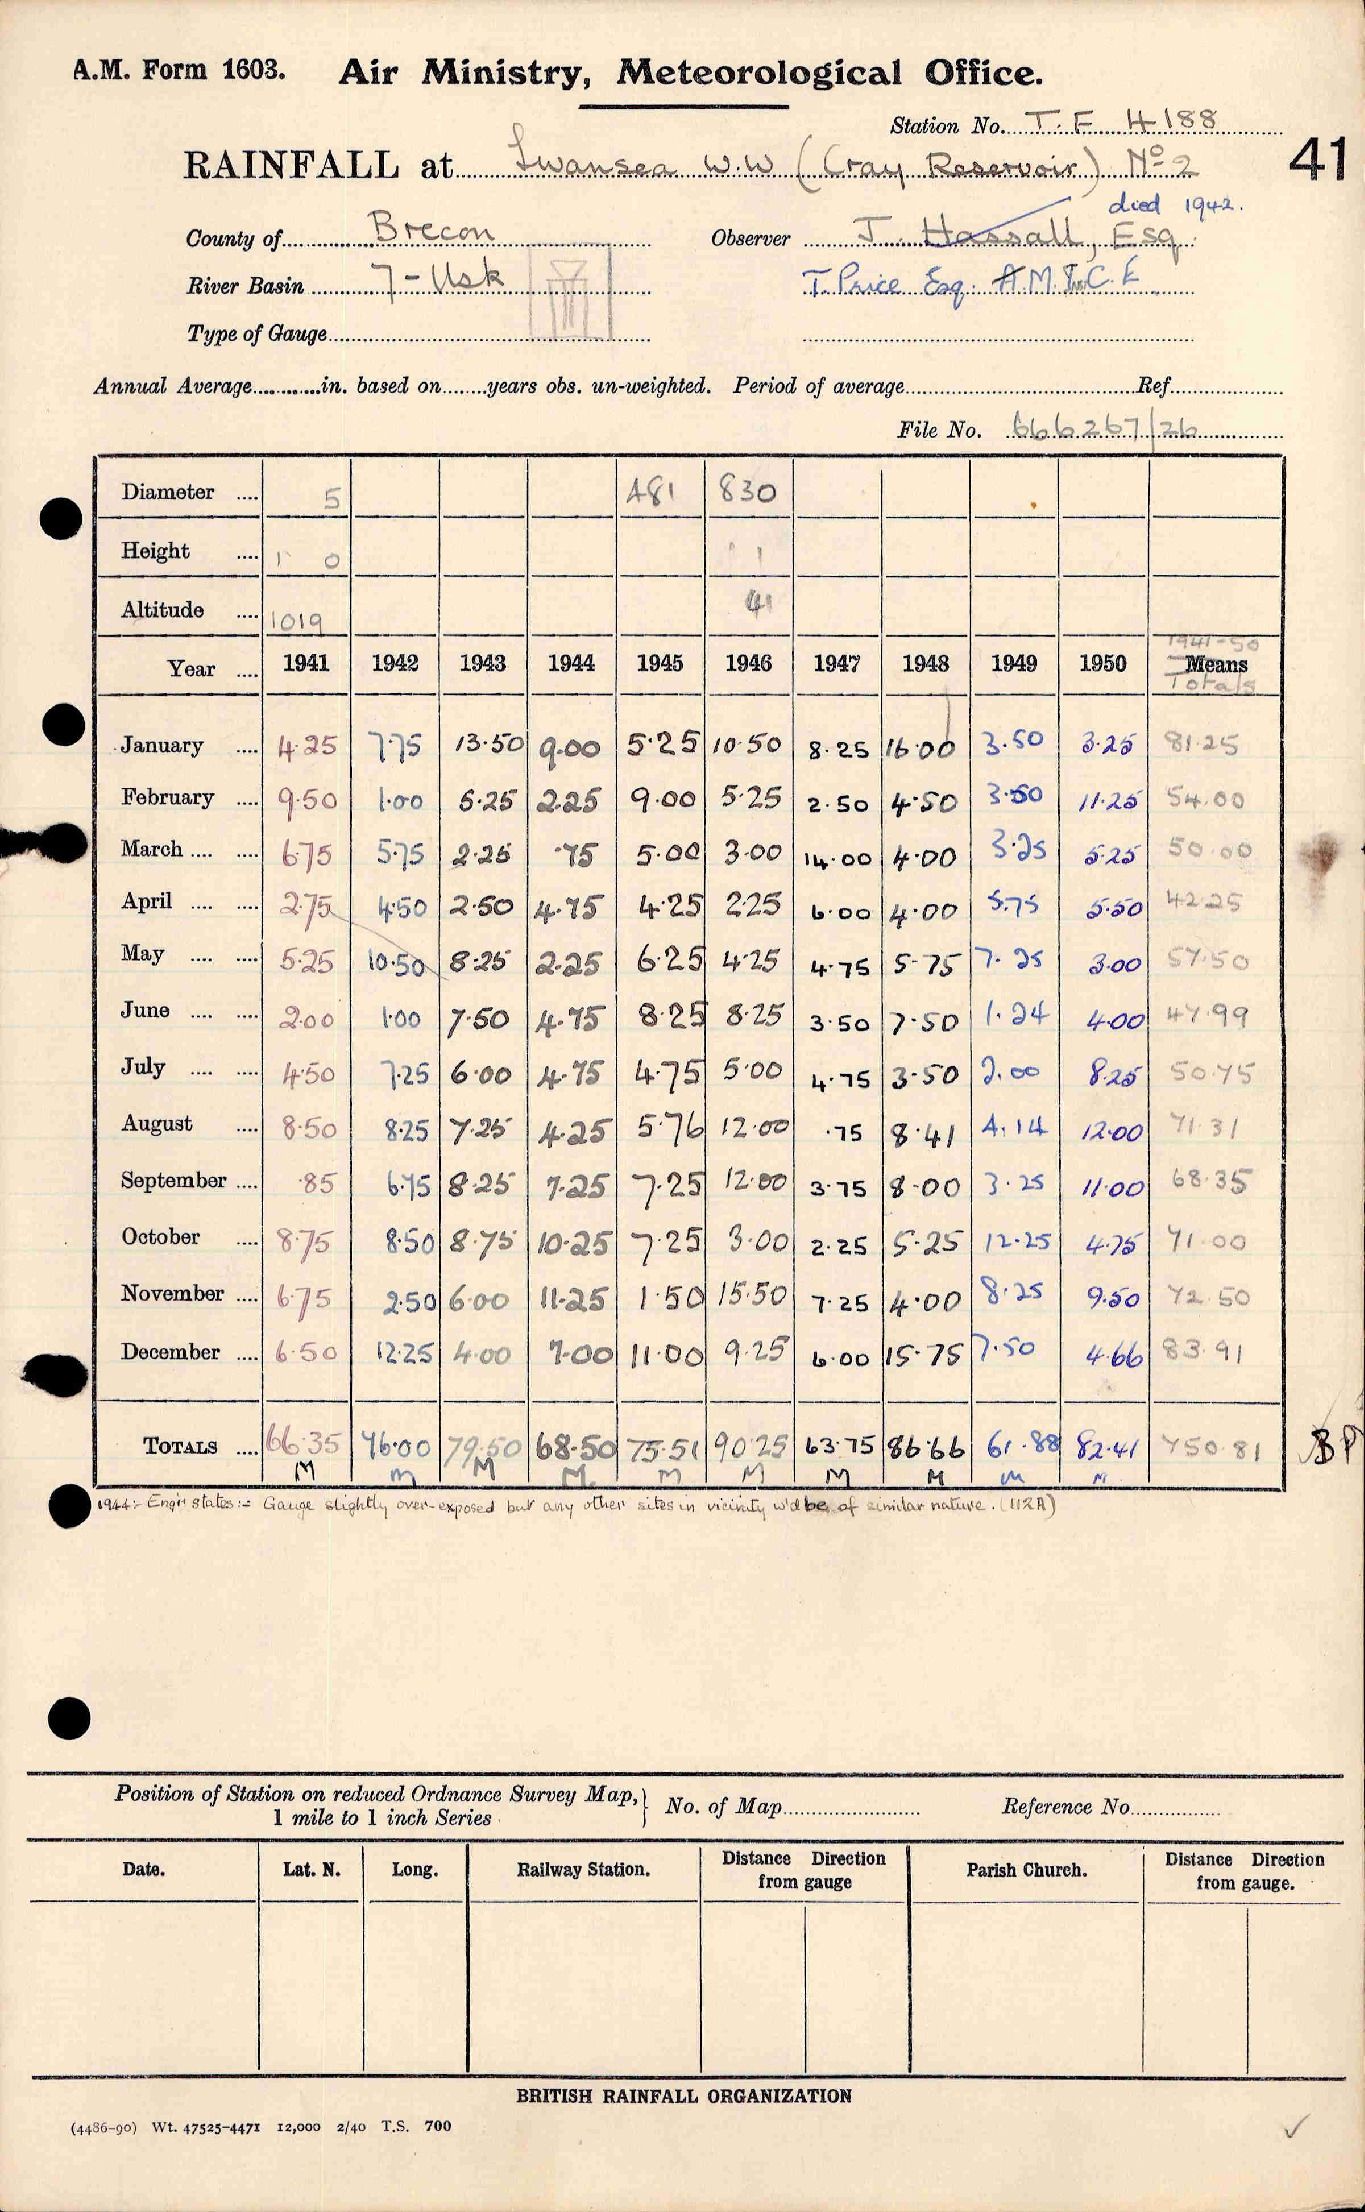 A.M. Form 1603. Air Ministry, Meteorological Office.
Station No. T.F 4188
RAINFALL at Swansea W.W (Cray Reservoir) No 2 41
died 1942.
County of Brecon Observer J. Hassall, Esq.
River Basin 7-Usk T. Price Esq. A.M.I.C.E
Type of Gauge
Annual Average in. based on years obs. un-weighted. Period of average Ref.
File No. 666267/26
Diameter .... 5 481 830
Height .... 1 0 1
Altitude .... 1019 41
1941-50
Year .... 1941 1942 1943 1944 1945 1946 1947 1948 1949 1950 Means
Totals
January .... 4.25 7.75 13.50 9.00 5.25 10.50 8.25 16.00 3.50 3.25 81.25
February .... 9.50 1.00 5.25 2.25 9.00 5.25 2.50 4.50 3.50 11.25 54.00
March .... .... 6.75 5.75 2.25 .75 5.00 3.00 14.00 4.00 3.25 5.25 50.00
April .... .... 2.75 4.50 2.50 4.75 4.25 2.25 6.00 4.00 5.75 5.50 42.25
May .... .... 5.25 10.50 8.25 2.25 6.25 4.25 4.75 5.75 7.25 3.00 57.50
June .... .... 2.00 1.00 7.50 4.75 8.25 8.25 3.50 7.50 1.24 4.00 47.99
July .... .... 4.50 7.25 6.00 4.75 4.75 5.00 4.75 3.50 2.00 8.25 50.75
August .... 8.50 8.25 7.25 4.25 5.76 12.00 .75 8.41 4.14 12.00 71.31
September .... .85 6.75 8.25 7.25 7.25 12.00 3.75 8.00 3.25 11.00 68.35
October .... 8.75 8.50 8.75 10.25 7.25 3.00 2.25 5.25 12.25 4.75 71.00
November .... 6.75 2.50 6.00 11.25 1.50 15.50 7.25 4.00 8.25 9.50 72.50
December .... 6.50 12.25 4.00 7.00 11.00 9.25 6.00 15.75 7.50 4.66 83.91
TOTALS .... 66.35 76.00 79.50 68.50 75.51 90.25 63.75 86.66 61.88 82.41 750.81 BP
M M M M M M M M M M
1944:- Engr. states:- Gauge slightly over-exposed but any other sites in vicinity w'd be of similar nature. (112A)
Position of Station on reduced Ordnance Survey Map, } No. of Map Reference No.
1 mile to 1 inch Series
Date. Lat. N. Long. Railway Station. Distance Direction from gauge Parish Church. Distance Direction from gauge.
BRITISH RAINFALL ORGANIZATION
(4486-90) Wt. 47525-4471 12,000 2/40 T.S. 700